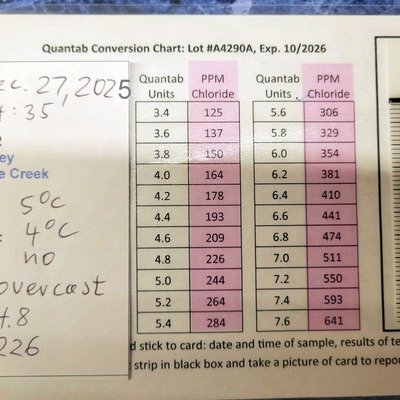 Quantab Conversion Chart: Lot #A4290A, Exp. 10/2026
27, 2025
: 35
Creek
5°C
4°C
no
overcast
.8
226
Quantab Units PPM Chloride Quantab Units PPM Chloride
3.4 125 5.6 306
3.6 137 5.8 329
3.8 150 6.0 354
4.0 164 6.2 381
4.2 178 6.4 410
4.4 193 6.6 441
4.6 209 6.8 474
4.8 226 7.0 511
5.0 244 7.2 550
5.2 264 7.4 593
5.4 284 7.6 641
stick to card: date and time of sample, results of
strip in black box and take a picture of card to